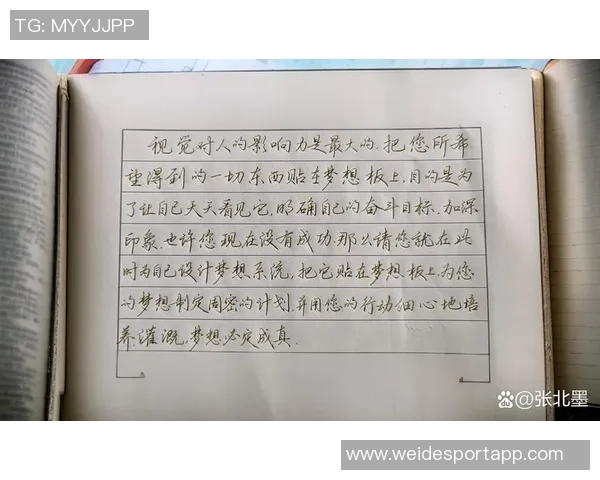 TG: MYYJJPP
视觉对人的影响力是最大的.把您所希
望得到的一切东西贴在梦想板上,目的是为
了让自己天天看见它,明确自己的奋斗目标,加深
印象.也许您现在没有成功.那么请您就在此
时为自己设计梦想系统,把它贴在梦想板上,为您
的梦想制定周密的计划.并用您的行动细心地培
养灌溉,梦想必定成真.
@张北墨
www.weidesportapp.com